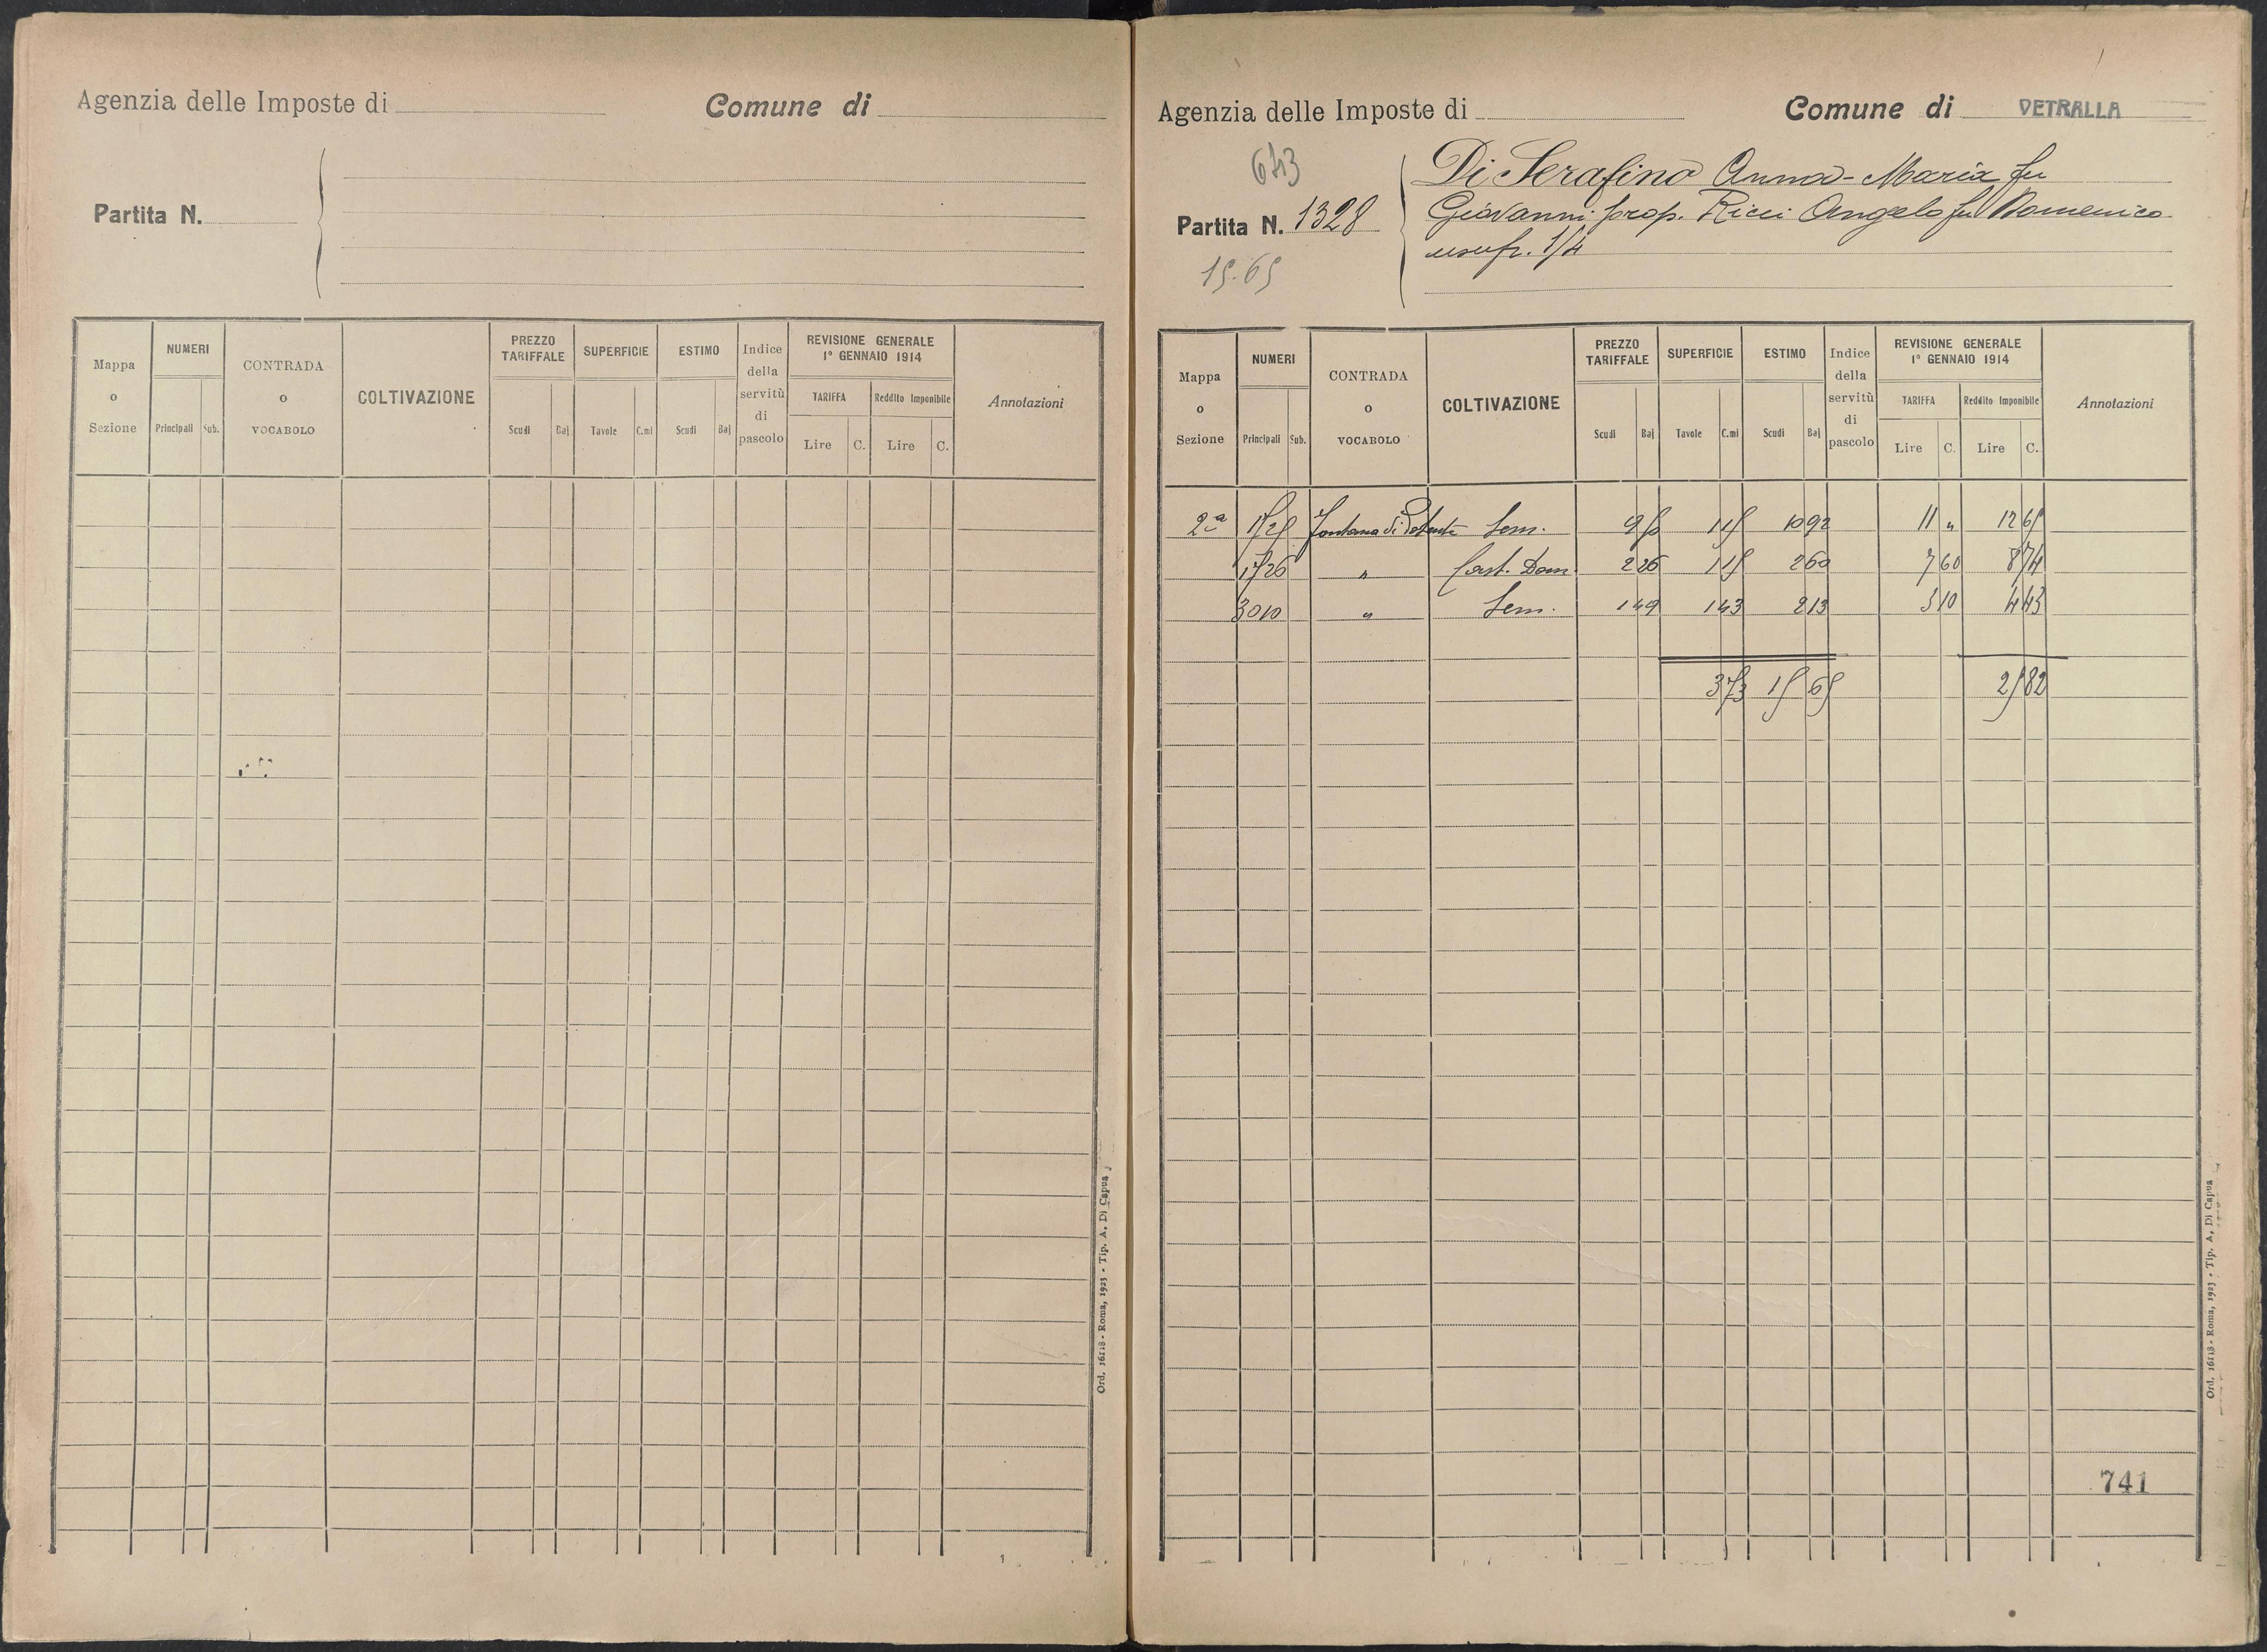 Agenzia delle Imposte di
Comune di
Partita N.
Mappa o Sezione
NUMERI
Principali Sub.
CONTRADA o VOCABOLO
COLTIVAZIONE
PREZZO TARIFFALE
Scudi Baj
SUPERFICIE
Tavole C.mi
ESTIMO
Scudi Baj
Indice della servitù di pascolo
REVISIONE GENERALE
1° GENNAIO 1914
TARIFFA Reddito Imponibile
Lire C. Lire C.
Annotazioni
Ord. 16118 - Roma, 1923 - Tip. A. Di Capua
Agenzia delle Imposte di
Comune di VETRALLA
643
Partita N. 1328
15.65
Di Serafino Anna-Maria fu
Giovanni prop. Ricci Angelo fu Domenico
usufr. 1/4
Mappa o Sezione
NUMERI
Principali Sub.
CONTRADA o VOCABOLO
COLTIVAZIONE
PREZZO TARIFFALE
Scudi Baj
SUPERFICIE
Tavole C.mi
ESTIMO
Scudi Baj
Indice della servitù di pascolo
REVISIONE GENERALE
1° GENNAIO 1914
TARIFFA Reddito Imponibile
Lire C. Lire C.
Annotazioni
2ª Fontana di Sem. 9 5 1 15 10 92 11 " 12 65
" Cast. Dom 2 26 1 15 2 60 7 60 8 74
3010 " Sem. 1 49 1 43 2 13 3 10 4 43
3 73 15 65 25 82
741
Ord. 16118 - Roma, 1923 - Tip. A. Di Capua